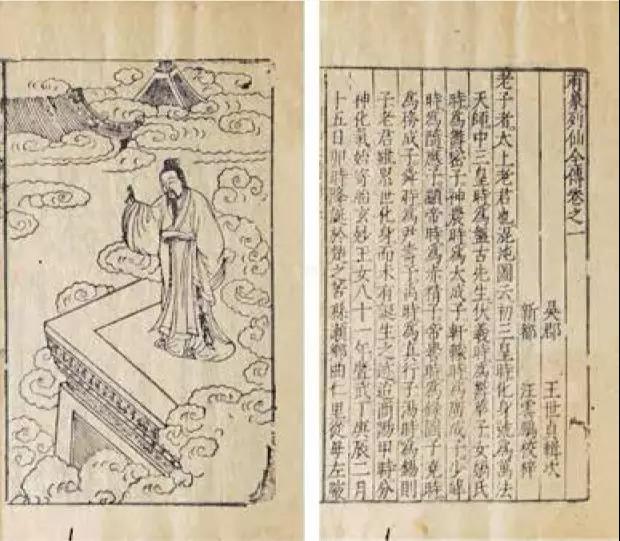 有象列仙全傳卷之一
吳郡 王世貞輯次
新都 汪雲鵬校梓
老子者太上老君也混沌圖云初三皇時化身號為萬法
天師中三皇時為盤古先生伏羲時為鬱華子女媧氏
時為鬱密子神農時為大成子軒轅時為廣成子少皞
時為隨應子顓帝時為赤精子帝嚳時為錄圖子堯時
為務成子舜時為尹壽子禹時為真行子湯時為錫則
子老君雖累世化身而未有誕生之迹迨商陽甲時分
神化氣始寄胎玄妙玉女八十一年暨武丁庚辰二月
十五日卯時降誕於楚之苦縣瀨鄉曲仁里從母左腋